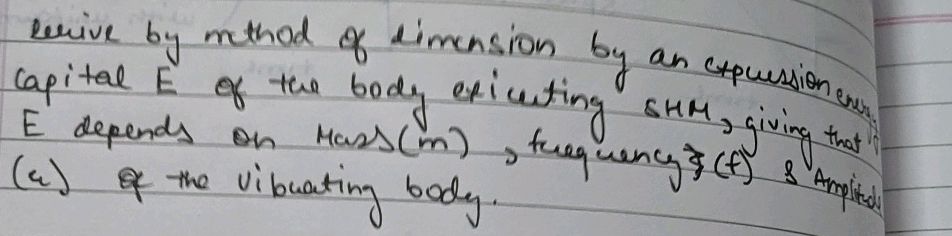 Derive by method of dimension by an expression energy
Capital E of the body exicuting SHM, giving that if
E depends on Mass(m), frequency (f) & Amplitude
(a) of the vibrating body.